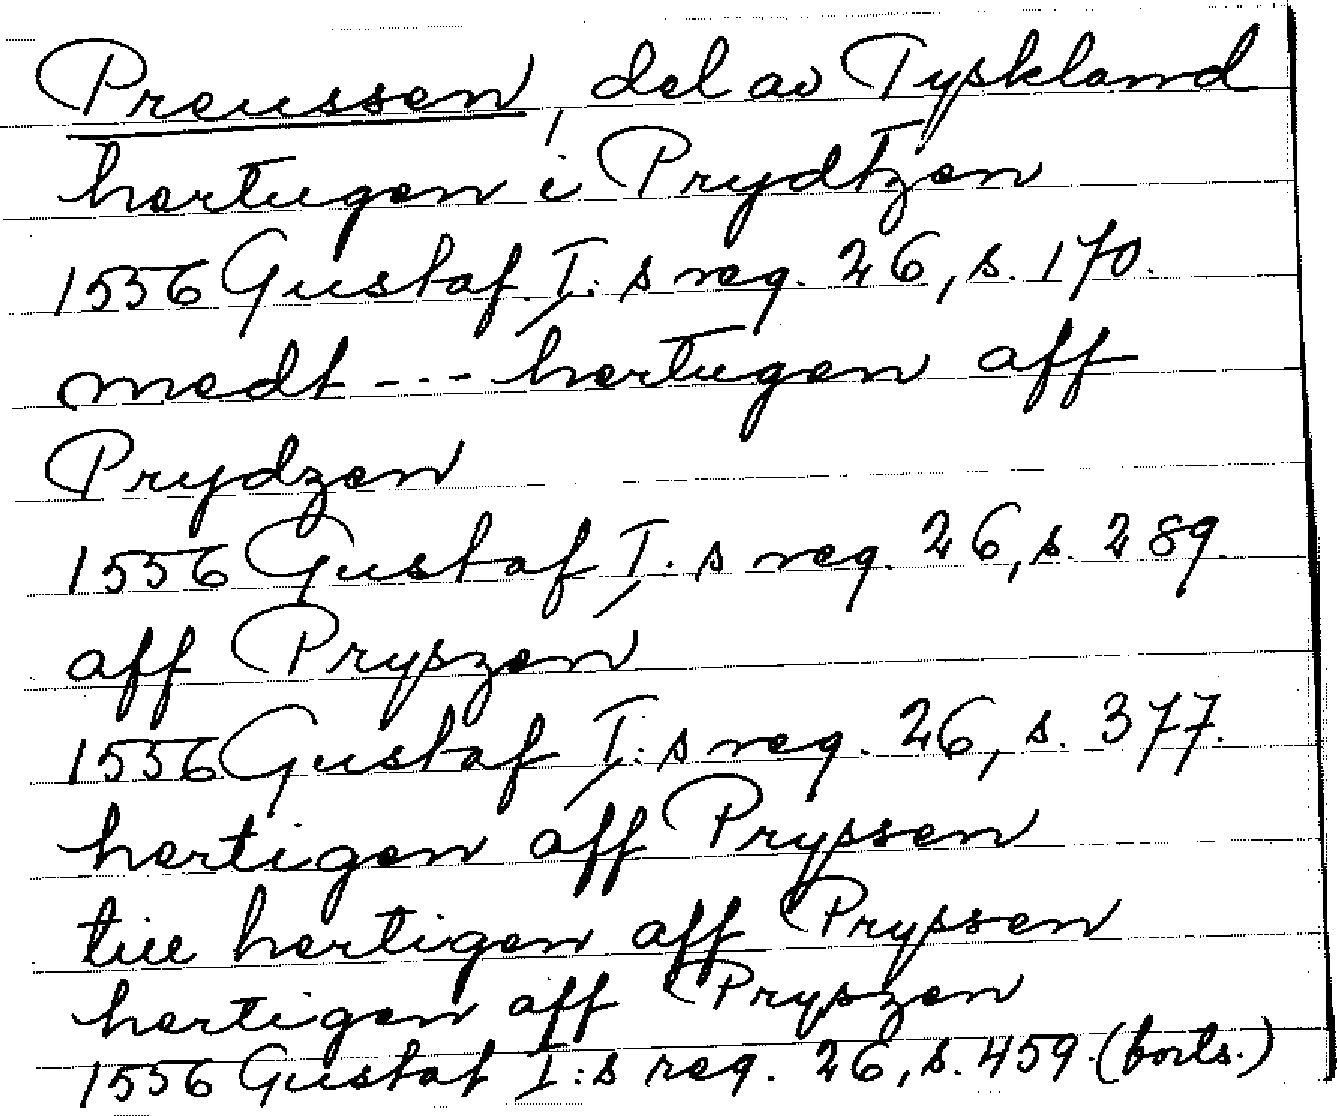 Preussen, del av Tyskland
hertugen i Prydtzen
1556 Gustaf I:s reg. 26, s. 170.
medt --- hertugen aff
Prydzen
1556 Gustaf I:s reg. 26, s. 289.
aff Pryszen
1556 Gustaf I:s reg. 26, s. 377.
hertigen aff Pryssen
till hertigen aff Pryssen
hertigen aff Pryszen
1556 Gustaf I:s reg. 26, s. 459. (forts.)